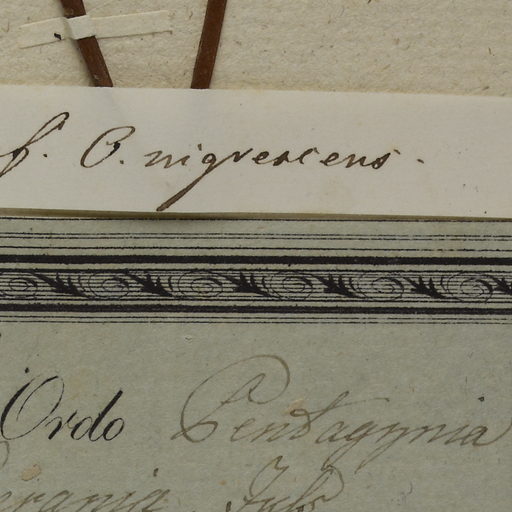 f. O. nigrescens.
Ordo Pentagynia